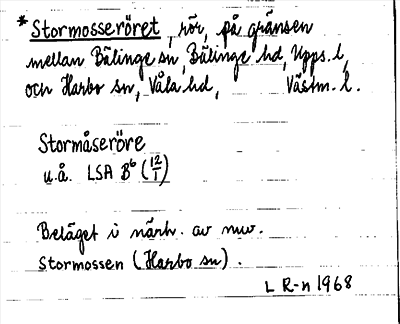 * Stormosseröret, rör, på gränsen
mellan Bälinge sn, Bälinge hd, Upps. l,
och Harbo sn, Våla hd, Västm. l.
Stormåseröre
u.å. LSA B6 (12/1)
Beläget i närh. av nuv.
Stormossen (Harbo sn).
L R-n 1968